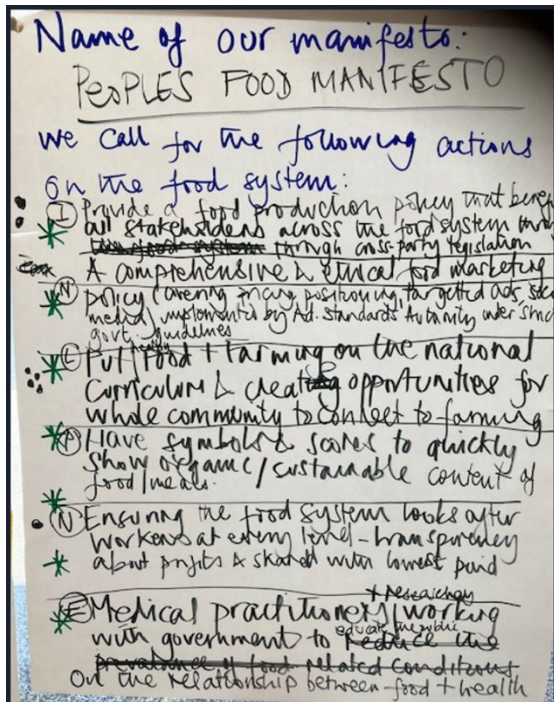 Name of our manifesto:
PEOPLES FOOD MANIFESTO
we call for the following actions
on the food system:
I Provide a food production policy that
all stakeholders across the food system
through cross-party legislation
A comprehensive & ethical food marketing
N policy (covering pricing, positioning, targeted ads,
media) implemented by Ad. Standards Authority under
govt. guidelines
Put food + farming on the national
Curriculum & creating opportunities for
whole community to connect to farming
Have symbols & scores to quickly
show organic/sustainable content of
food/meals.
N Ensuring the food system looks after
workers at every level - transparency
about profits & shared with lowest paid
+ researchers
E Medical practitioners working
educate the public
with government to reduce the
prevalence of food related conditions
On the relationship between food + health